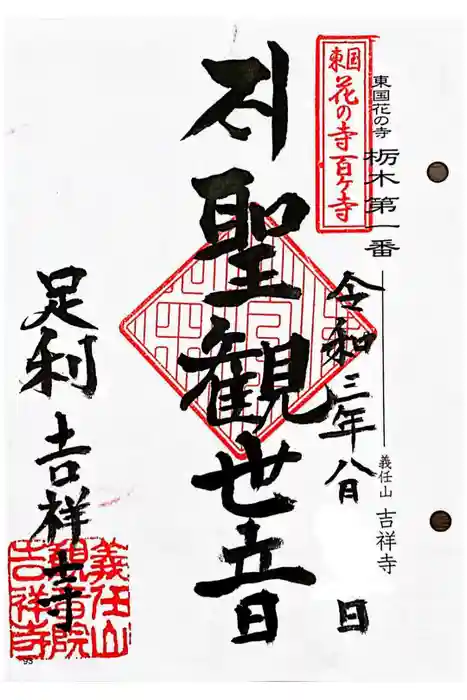 東国花の寺 栃木第一番
義任山 吉祥寺
東国
花の寺百ヶ寺
令和三年八月 日
聖観世音
足利 吉祥寺
義任山
観音院
吉祥寺
93